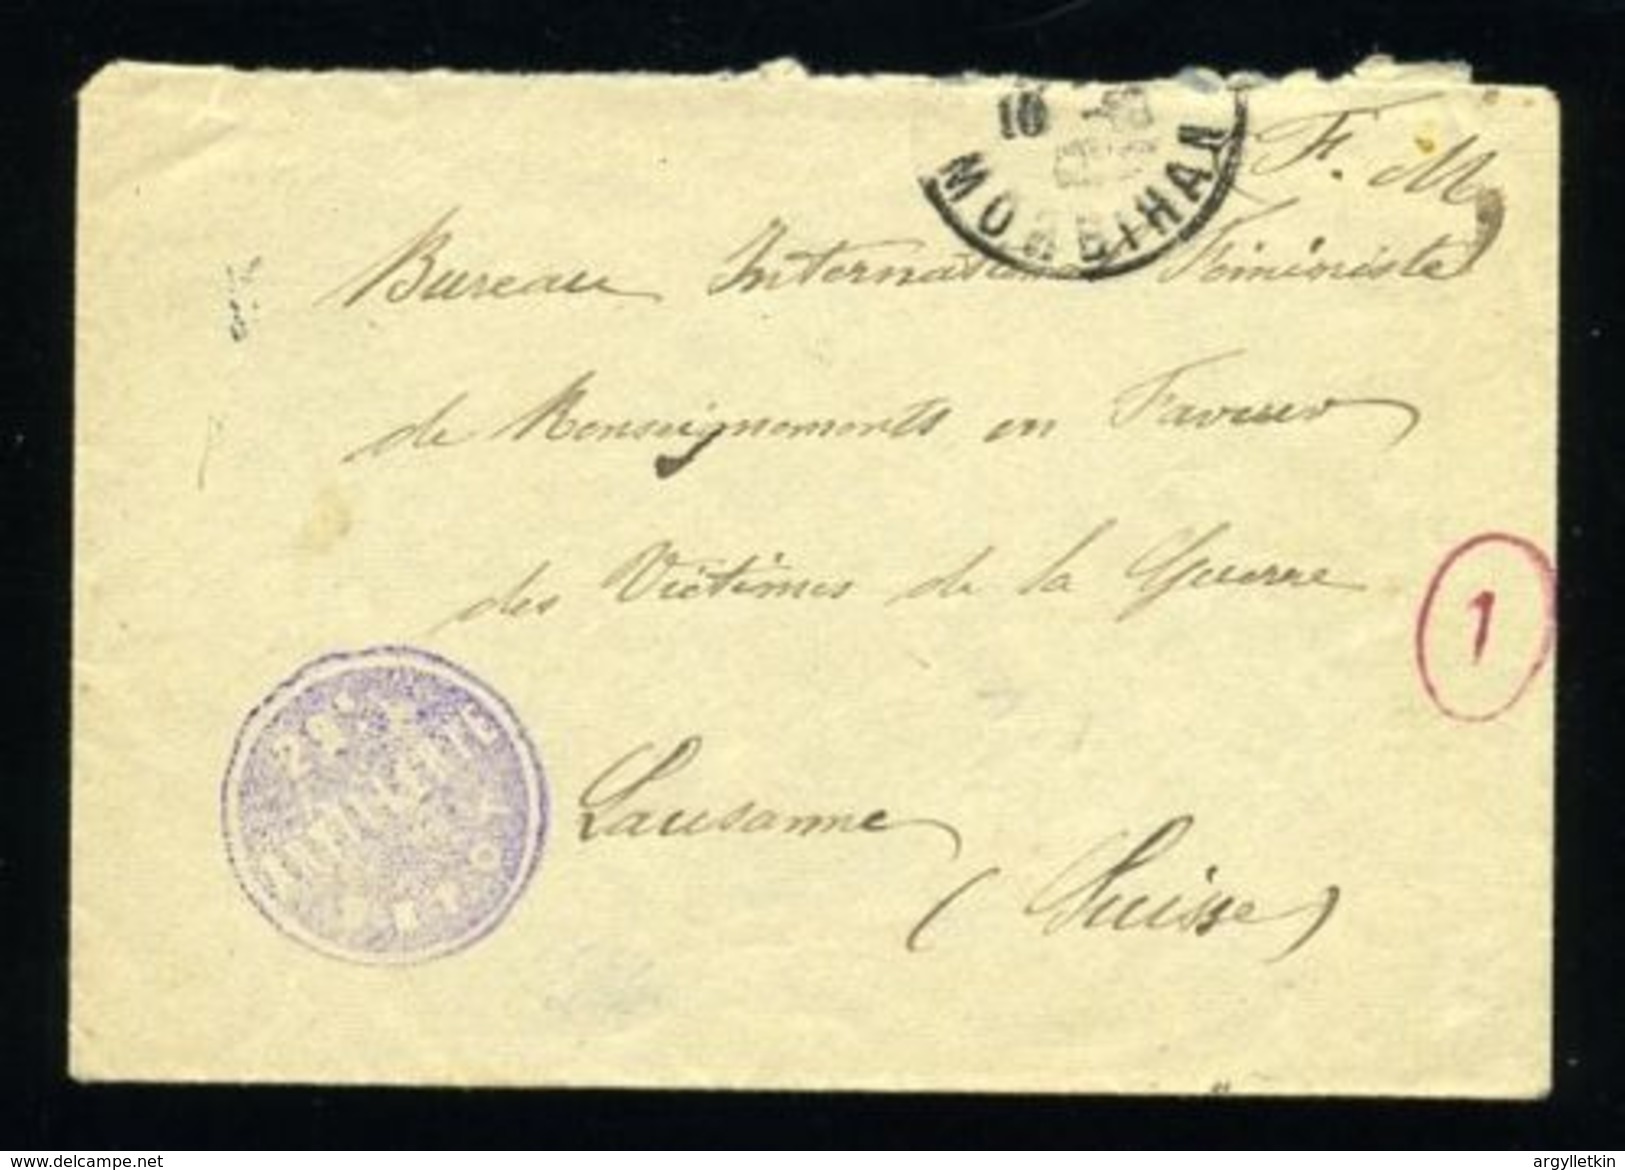 10
MORBIHAN
F. M.
Bureau International Féministe
de Renseignements en Faveur
des Victimes de la Guerre
1
Lausanne
(Suisse)
www.delcampe.net
argylletkin